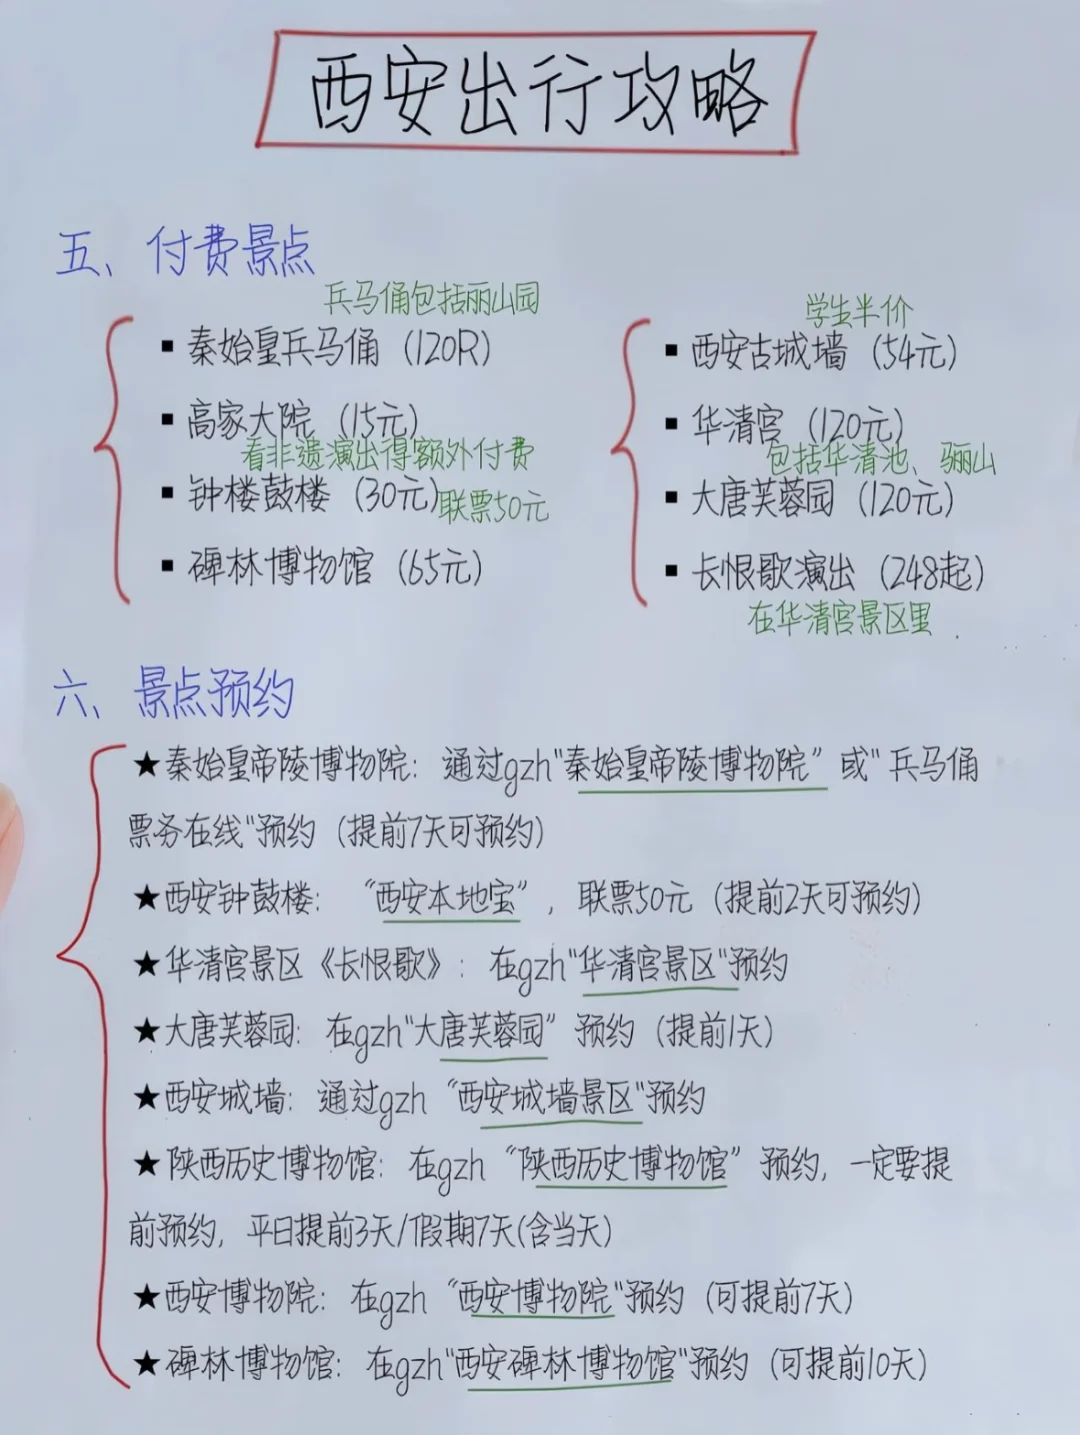 西安出行攻略
五、付费景点
兵马俑包括丽山园
▪ 秦始皇兵马俑（120R）
▪ 高家大院（15元）
看非遗演出得额外付费
▪ 钟楼鼓楼（30元）联票50元
▪ 碑林博物馆（65元）
学生半价
▪ 西安古城墙（54元）
▪ 华清宫（120元）
包括华清池、骊山
▪ 大唐芙蓉园（120元）
▪ 长恨歌演出（248起）
在华清宫景区里
六、景点预约
★秦始皇帝陵博物院：通过gzh"秦始皇帝陵博物院"或"兵马俑
票务在线"预约（提前7天可预约）
★西安钟鼓楼："西安本地宝"，联票50元（提前2天可预约）
★华清宫景区《长恨歌》：在gzh"华清宫景区"预约
★大唐芙蓉园：在gzh"大唐芙蓉园"预约（提前1天）
★西安城墙：通过gzh"西安城墙景区"预约
★陕西历史博物馆：在gzh"陕西历史博物馆"预约，一定要提
前预约，平日提前3天/假期7天(含当天)
★西安博物院：在gzh"西安博物院"预约（可提前7天）
★碑林博物馆：在gzh"西安碑林博物馆"预约（可提前10天）